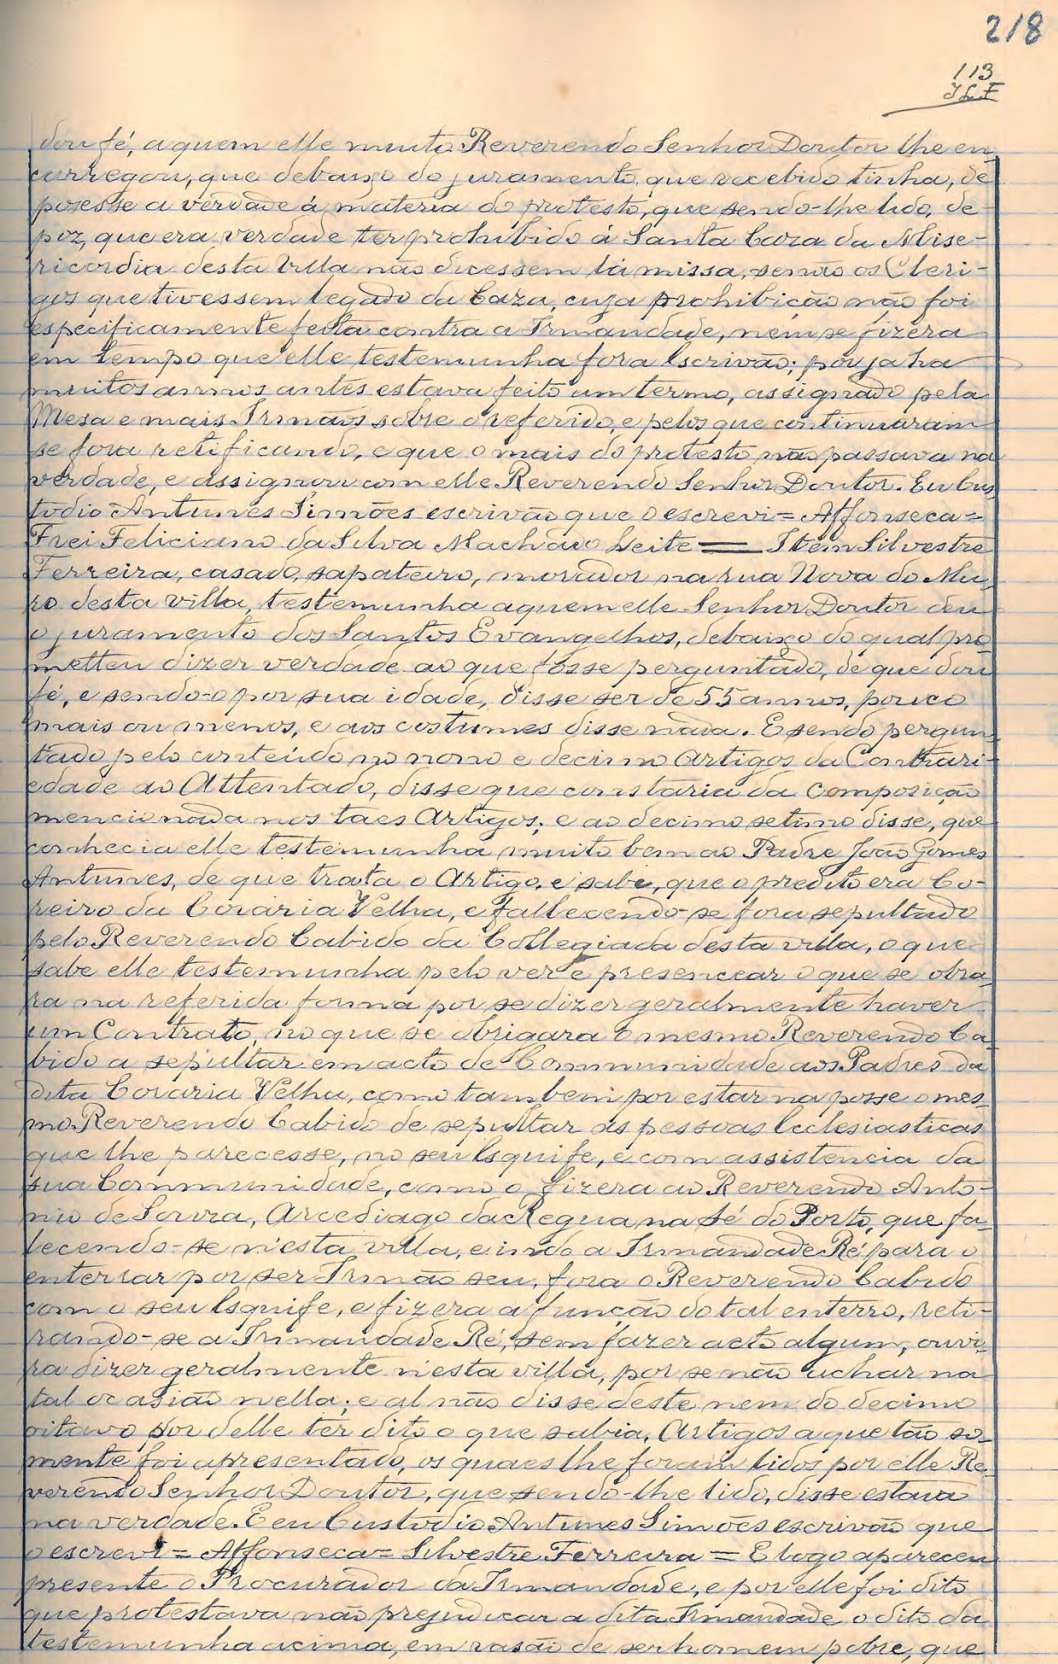 218
113
dou fé, a quem elle muito Reverendo Senhor Doutor lhe en-
carregou, que debaixo do juramento que recebido tinha, de-
pozesse a verdade á materia do protesto, que sendo-lhe lido, de-
poz, que era verdade ter prohibido á Santa Caza da Mise-
ricordia desta Villa não dicessem lá missa, senão os Cleri-
gos que tivessem legado da Caza, cuja prohibição não foi
especificamente feita contra a Irmandade, nem se fizéra
em tempo que elle testemunha fora Escrivão; por ja ha
muitos annos antes estava feito um termo, assignado pela
Mesa e mais Irmãos sobre o referido, e pelos que continuaram
se fora retificando, e que o mais do protesto não passava na
verdade, e assignou com elle Reverendo Senhor Doutor. Eu Cus-
todio Antunes Simões escrivão que o escrevi = Affonseca =
Frei Feliciano da Silva Machado Leite = Item Silvestre
Ferreira, casado, sapateiro, morador na rua Nova do Mu-
ro desta villa, testemunha a quem elle Senhor Doutor deu
o juramento dos Santos Evangelhos, debaixo do qual pro-
metteu dizer verdade ao que fosse perguntado, de que dou
fé, e sendo-o por sua idade, disse ser de 55 annos, pouco
mais ou menos, e aos costumes disse nada. E sendo pergun-
tado pelo conteúdo no nono e decimo Artigos da Contrari-
edade ao Attentado, disse que constaria da Composição
mencionada nos taes Artigos; e ao decimo setimo disse, que
conhecia elle testemunha muito bem ao Padre João Gomes
Antunes, de que trata o Artigo, e sabe, que o predito era Co-
reiro da Coraria Velha, e fallecendo-se fora sepultado
pelo Reverendo Cabido da Collegiada desta villa, o que
sabe elle testemunha pelo ver e presencear o que se obra-
ra na referida forma por se dizer geralmente haver
um Contrato, no que se obrigara o mesmo Reverendo Ca-
bido a sepultar em acto de Communidade aos Padres da
dita Coraria Velha, como tambem por estar na posse o mes-
mo Reverendo Cabido de sepultar as pessoas Ecclesiasticas
que lhe parecesse, no seu Esquife, e com assistencia da
sua Communidade, como o fizera ao Reverendo Anto-
nio de Souza, Arcediago da Regua na Sé do Porto, que fa-
lecendo-se n'esta villa, e indo a Irmandade Ré para o
enterrar por ser Irmão seu, fora o Reverendo Cabido
com o seu Esquife, e fizera a função do tal enterro, reti-
rando-se a Irmandade Ré, sem fazer acto algum, ouvi-
ra dizer geralmente n'esta villa, por se não achar na
tal ocasião nella; e al não disse deste nem do decimo
oitavo por delle ter dito o que sabia, Artigos a que tão so-
mente foi apresentado, os quaes lhe foram lidos por elle Re-
verendo Senhor Doutor, que sendo-lhe lido, disse estava
na verdade. E eu Custodio Antunes Simões escrivão que
o escrevi = Affonseca = Silvestre Ferreira = E logo apareceu
presente o Procurador da Irmandade, e por elle foi dito
que protestava não prejudicar a dita Irmandade o dito da
testemunha acima, em rasão de ser homem pobre, que